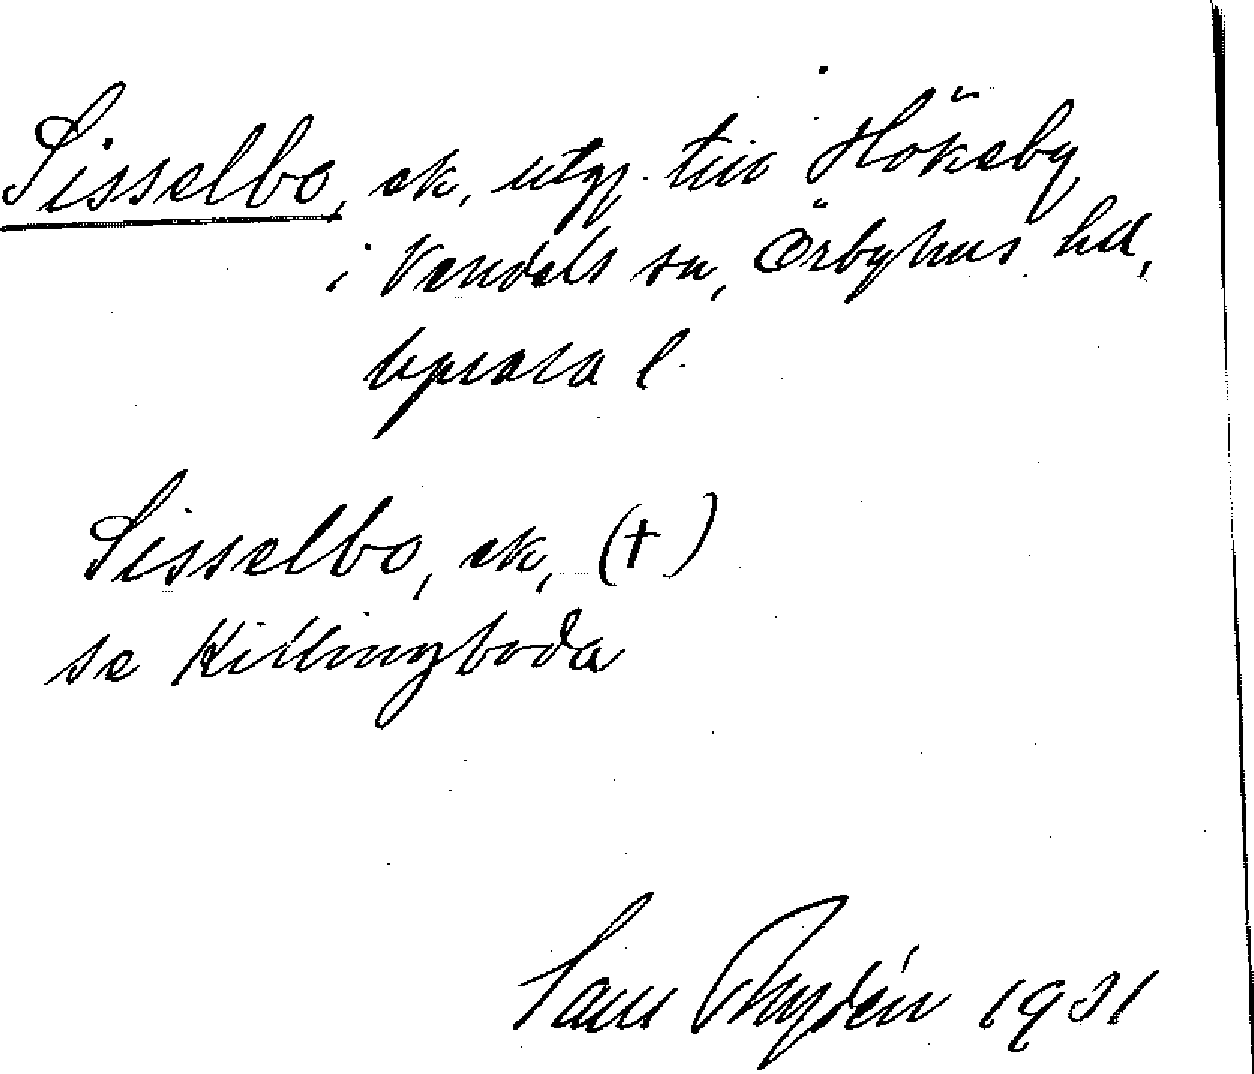 Sisselbo, ek, utg. till Hökeby
i Vendels sn, Örbyhus hd,
Upsala l.
Sisselbo, ek, (†)
se Killingboda
Sam Rydén 1931